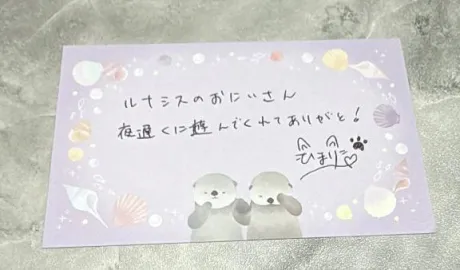 ルナシスのおにいさん
夜遅くに遊んでくれてありがと!
ひまりこ